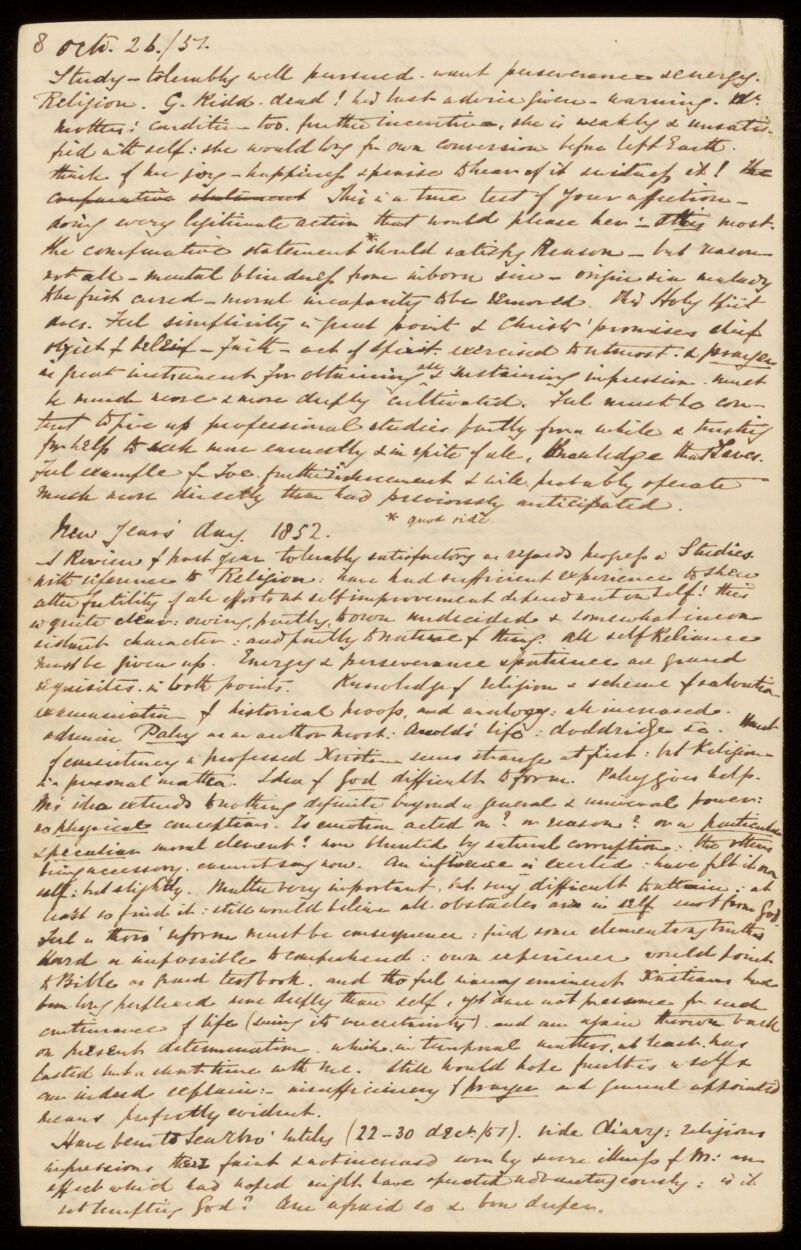 8 Octr. 26./51.
Study - tolerably well pursued. want perseverance & energy.
Religion. G. Kidd. dead! his last advice given - warning.
Mother's condition too. further incentive, she is weakly & unsatis-
fied with self: she would long for own conversion before left Earth.
think of her joy - happiness & praise to hear of it & witness it! The
comparative statement This is a true test of your affection -
doing every legitimate action that would please her - & this most.
the comparative statement * should satisfy Reason - but reason
not all - mental blindness from inborn sin - origin sin malady
the first cured - moral incapacity to be removed. This Holy Spirit
does. Feel simplicity a great point & Christ's promises chief
object of belief - Faith - act of Spirit exercised to utmost. & prayer
is great instrument for obtaining & sustaining impression. must
be much more & more deeply cultivated. Feel must be con-
tent to give up professional studies partly for a while & trusting
for help to seek more earnestly & in spite of all, Knowledge that saves.
Feel example for Joe. further inducement & will probably operate
much more directly than had previously anticipated.
* quod vide.
New Years' day. 1852.
A Review of past year tolerably satisfactory as regards progress in Studies
with reference to Religion: have had sufficient experience to shew
utter futility of all efforts at self improvement dependant on self! this
is quite clear: owing, partly, to own undecided & somewhat incon-
sistent character: and partly to nature of thing. All self Reliance
must be given up. Energy & perseverance & patience are grand
requisites in both points. Knowledge of religion & scheme of salvation
examination of historical proofs, and analogy: all increased.
admire Paley as an author most: Arnold's life: doddridge &c. Want
of consistency in professed Xristian seems strange at first: but Religion
is a personal matter. Idea of God difficult to form. Paley gives help.
his idea extends to nothing definite beyond a general & universal power:
no physical conceptions. Is emotion acted on? or reason? or a particular
& peculiar moral element? now blunted by natural corruption: the others
being accessory. cannot say now. An influence is exerted: have felt it on
self: but slightly. Matter very important, but very difficult to attain: at
least so find it: still would believe all obstacles are in self & not from God.
Feel a thoro' reform must be consequence: find some elementary truths
Hard or impossible to comprehend: own experience would point
to Bible as grand textbook. and tho feel many eminent Xristians have
been long perplexed more deeply than self, yet dare not presume for such
continuance of life (seeing its uncertainty). and am again thrown back
on present determination. which, in temporal matters, at least, has
lasted but a short time with me. Still would hope further in self &
can indeed explain: - insufficiency of prayer and general appointed
means perfectly evident.
Have been to Scarbro' lately (22-30 Decr./51). vide Diary: religious
impressions there faint & not increased even by severe illness of M: an
effect which had hoped might have operated advantageously: is it
not tempting God? Am afraid so & bow deeper.